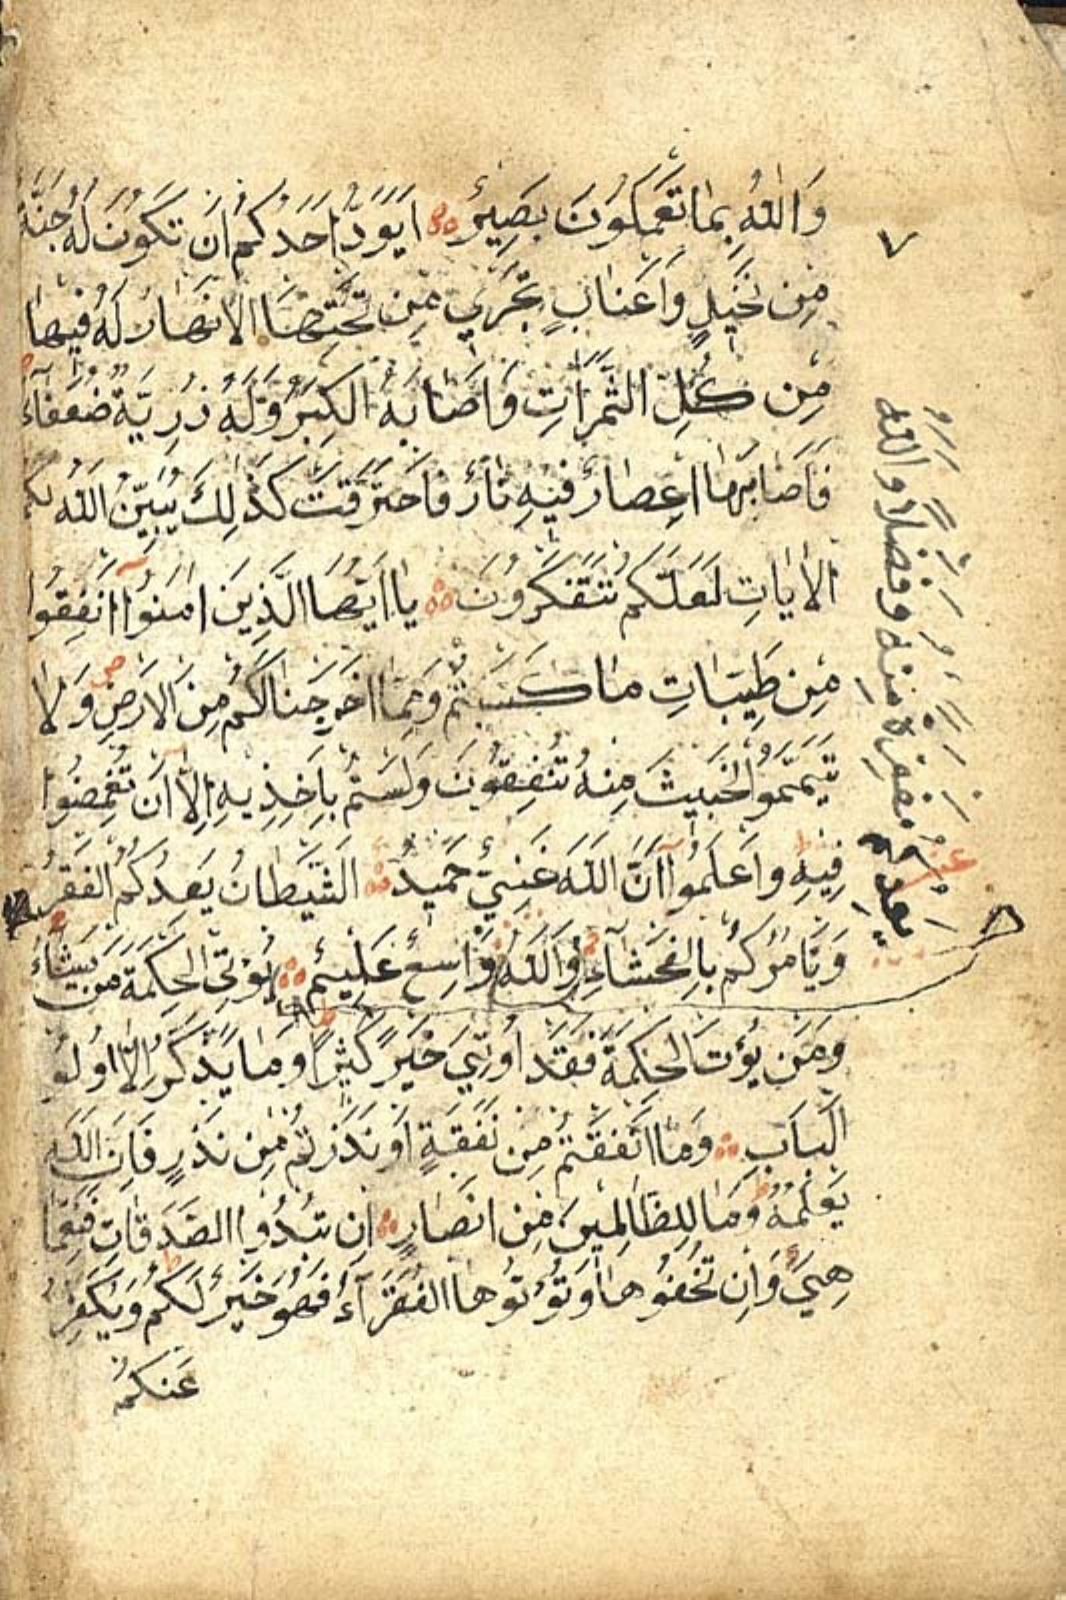 وَاللّٰهُ بِمَا تَعْمَلُونَ بَصِيرٌ اَيَوَدُّ اَحَدُكُمْ اَنْ تَكُونَ لَهُ جَنَّةٌ
مِنْ نَخِيلٍ وَاَعْنَابٍ تَجْرِي مِنْ تَحْتِهَا الْاَنْهَارُ لَهُ فِيهَا
مِنْ كُلِّ الثَّمَرَاتِ وَاَصَابَهُ الْكِبَرُ وَلَهُ ذُرِّيَّةٌ ضُعَفَآءُ
فَاَصَابَهَا اِعْصَارٌ فِيهِ نَارٌ فَاحْتَرَقَتْ كَذٰلِكَ يُبَيِّنُ اللّٰهُ لَكُمُ
الْاٰيَاتِ لَعَلَّكُمْ تَتَفَكَّرُونَ يَا اَيُّهَا الَّذِينَ اٰمَنُوا اَنْفِقُوا
مِنْ طَيِّبَاتِ مَا كَسَبْتُمْ وَمِمَّا اَخْرَجْنَا لَكُمْ مِنَ الْاَرْضِ وَلَا
تَيَمَّمُوا الْخَبِيثَ مِنْهُ تُنْفِقُونَ وَلَسْتُمْ بِاٰخِذِيهِ اِلَّا اَنْ تُغْمِضُوا
فِيهِ وَاعْلَمُوا اَنَّ اللّٰهَ غَنِيٌّ حَمِيدٌ الشَّيْطَانُ يَعِدُكُمُ الْفَقْرَ
وَيَاْمُرُكُمْ بِالْفَحْشَآءِ وَاللّٰهُ وَاسِعٌ عَلِيمٌ يُؤْتِى الْحِكْمَةَ مَنْ يَشَآءُ
وَمَنْ يُؤْتَ الْحِكْمَةَ فَقَدْ اُوتِيَ خَيْرًا كَثِيرًا وَمَا يَذَّكَّرُ اِلَّا اُولُو
الْبَابِ وَمَا اَنْفَقْتُمْ مِنْ نَفَقَةٍ اَوْ نَذَرْتُمْ مِنْ نَذْرٍ فَاِنَّ اللّٰهَ
يَعْلَمُهُ وَمَا لِلظَّالِمِينَ مِنْ اَنْصَارٍ اِنْ تُبْدُوا الصَّدَقَاتِ فَنِعِمَّا
هِيَ وَاِنْ تُخْفُوهَا وَتُؤْتُوهَا الْفُقَرَآءَ فَهُوَ خَيْرٌ لَكُمْ وَيُكَفِّرُ
عَنْكُمْ
٧
يَعِدُكُمْ مَغْفِرَةً مِنْهُ وَفَضْلًا وَاللّٰهُ